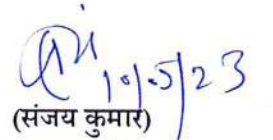 10/5/23
(संजय कुमार)